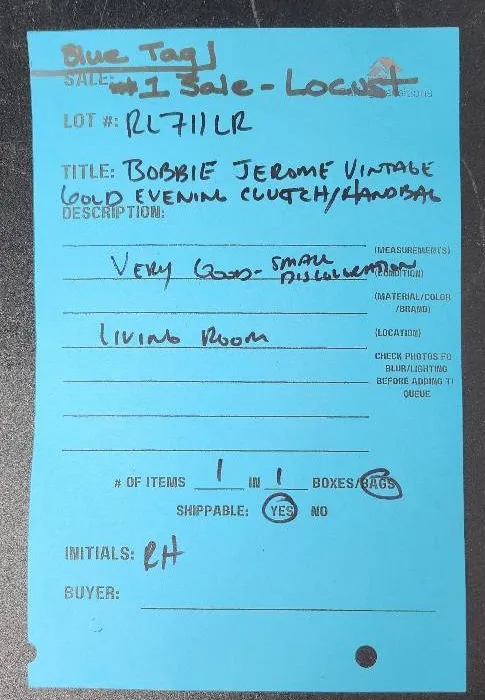 Blue Tag
SALE: #1 Sale - Locust
LOT #: RL711LR
TITLE: BOBBIE JEROME VINTAGE
GOLD EVENING CLUTCH/HANDBAG
DESCRIPTION:
(MEASUREMENTS)
VERY GOOD - SMALL
DISCOLORATION (CONDITION)
(MATERIAL/COLOR
/BRAND)
LIVING ROOM (LOCATION)
CHECK PHOTOS FO
BLUR/LIGHTING
BEFORE ADDING T
QUEUE
# OF ITEMS 1 IN 1 BOXES/BAGS
SHIPPABLE: YES NO
INITIALS: RH
BUYER: